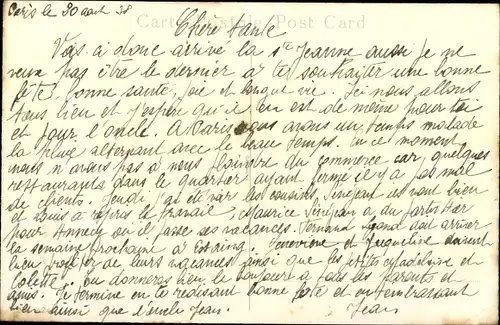 Paris le 30 août 38
Carte Postale Post Card
Chère tante
Vois-ci donc arrivé la Ste Jeanne aussi je ne
veux pas être le dernier à te souhaiter une bonne
fête, bonne santé, joie et longue vie. Ici nous allons
tous bien et j'espère qu'il en est de même pour toi
et pour l'oncle. A Paris nous avons un temps malade
la pluie alternant avec le beau temps. En ce moment
nous n'avons pas à nous plaindre du commerce car quelques
restaurants dans le quartier ayant fermé il y a pas mal
de clients. Jeudi j'ai été voir les cousins Sénéjean ils vont bien
et Louis a repris le travail, Maurice Sénéjean a du partir hier
pour Annecy où il passe ses vacances. Fernand doit arriver
la semaine prochaine à Geneviève et Jacqueline doivent
bien profiter de leurs vacances ainsi que les et
Colette. Tu donneras bien le bonjour à tous les parents et
amis. Je termine en te redisant bonne fête et en t'embrassant
bien ainsi que l'oncle Jean. Jean